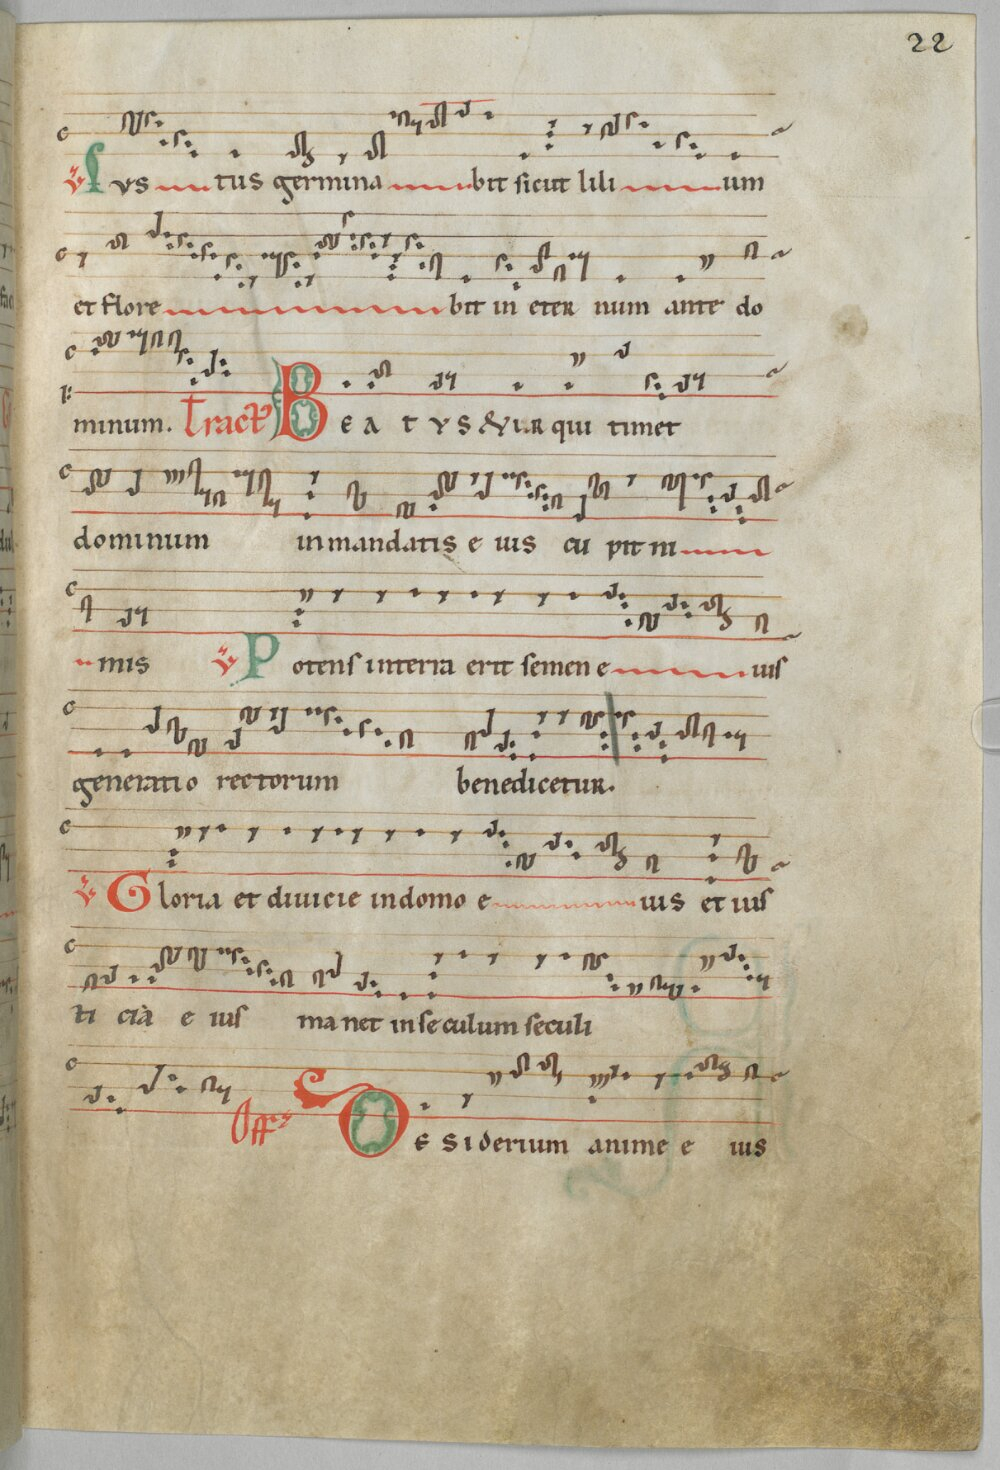 22
℣ Iustus germinabit sicut lilium
et florebit in eternum ante do
minum. Tract9 BEATVS & VIR qui timet
dominum in mandatis eius cupit ni
mis ℣ Potens in terra erit semen eius
generatio rectorum benedicetur.
℣ Gloria et diuicie in domo eius et ius
ticiā eius manet in seculum seculi
Off DESIDERIUM anime eius